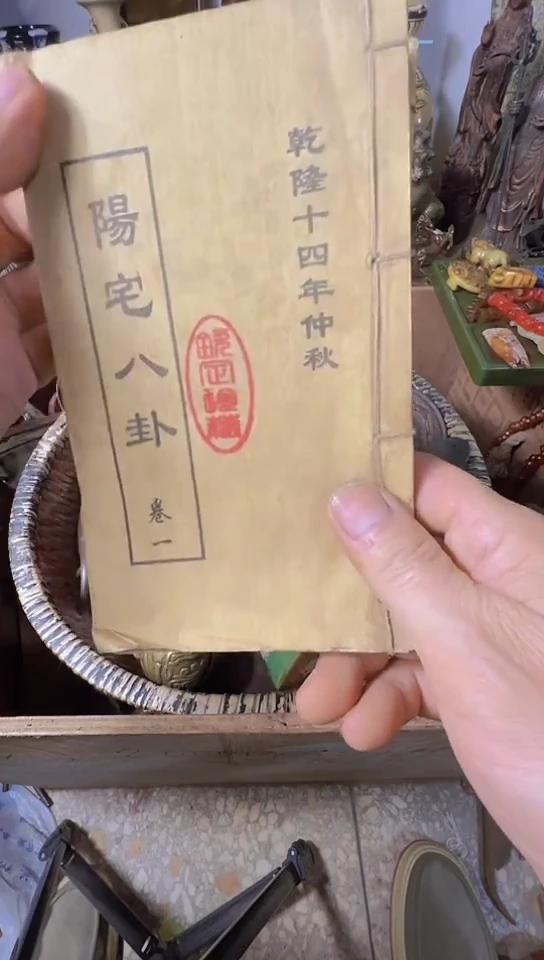 乾隆十四年仲秋
陽宅八卦 卷一